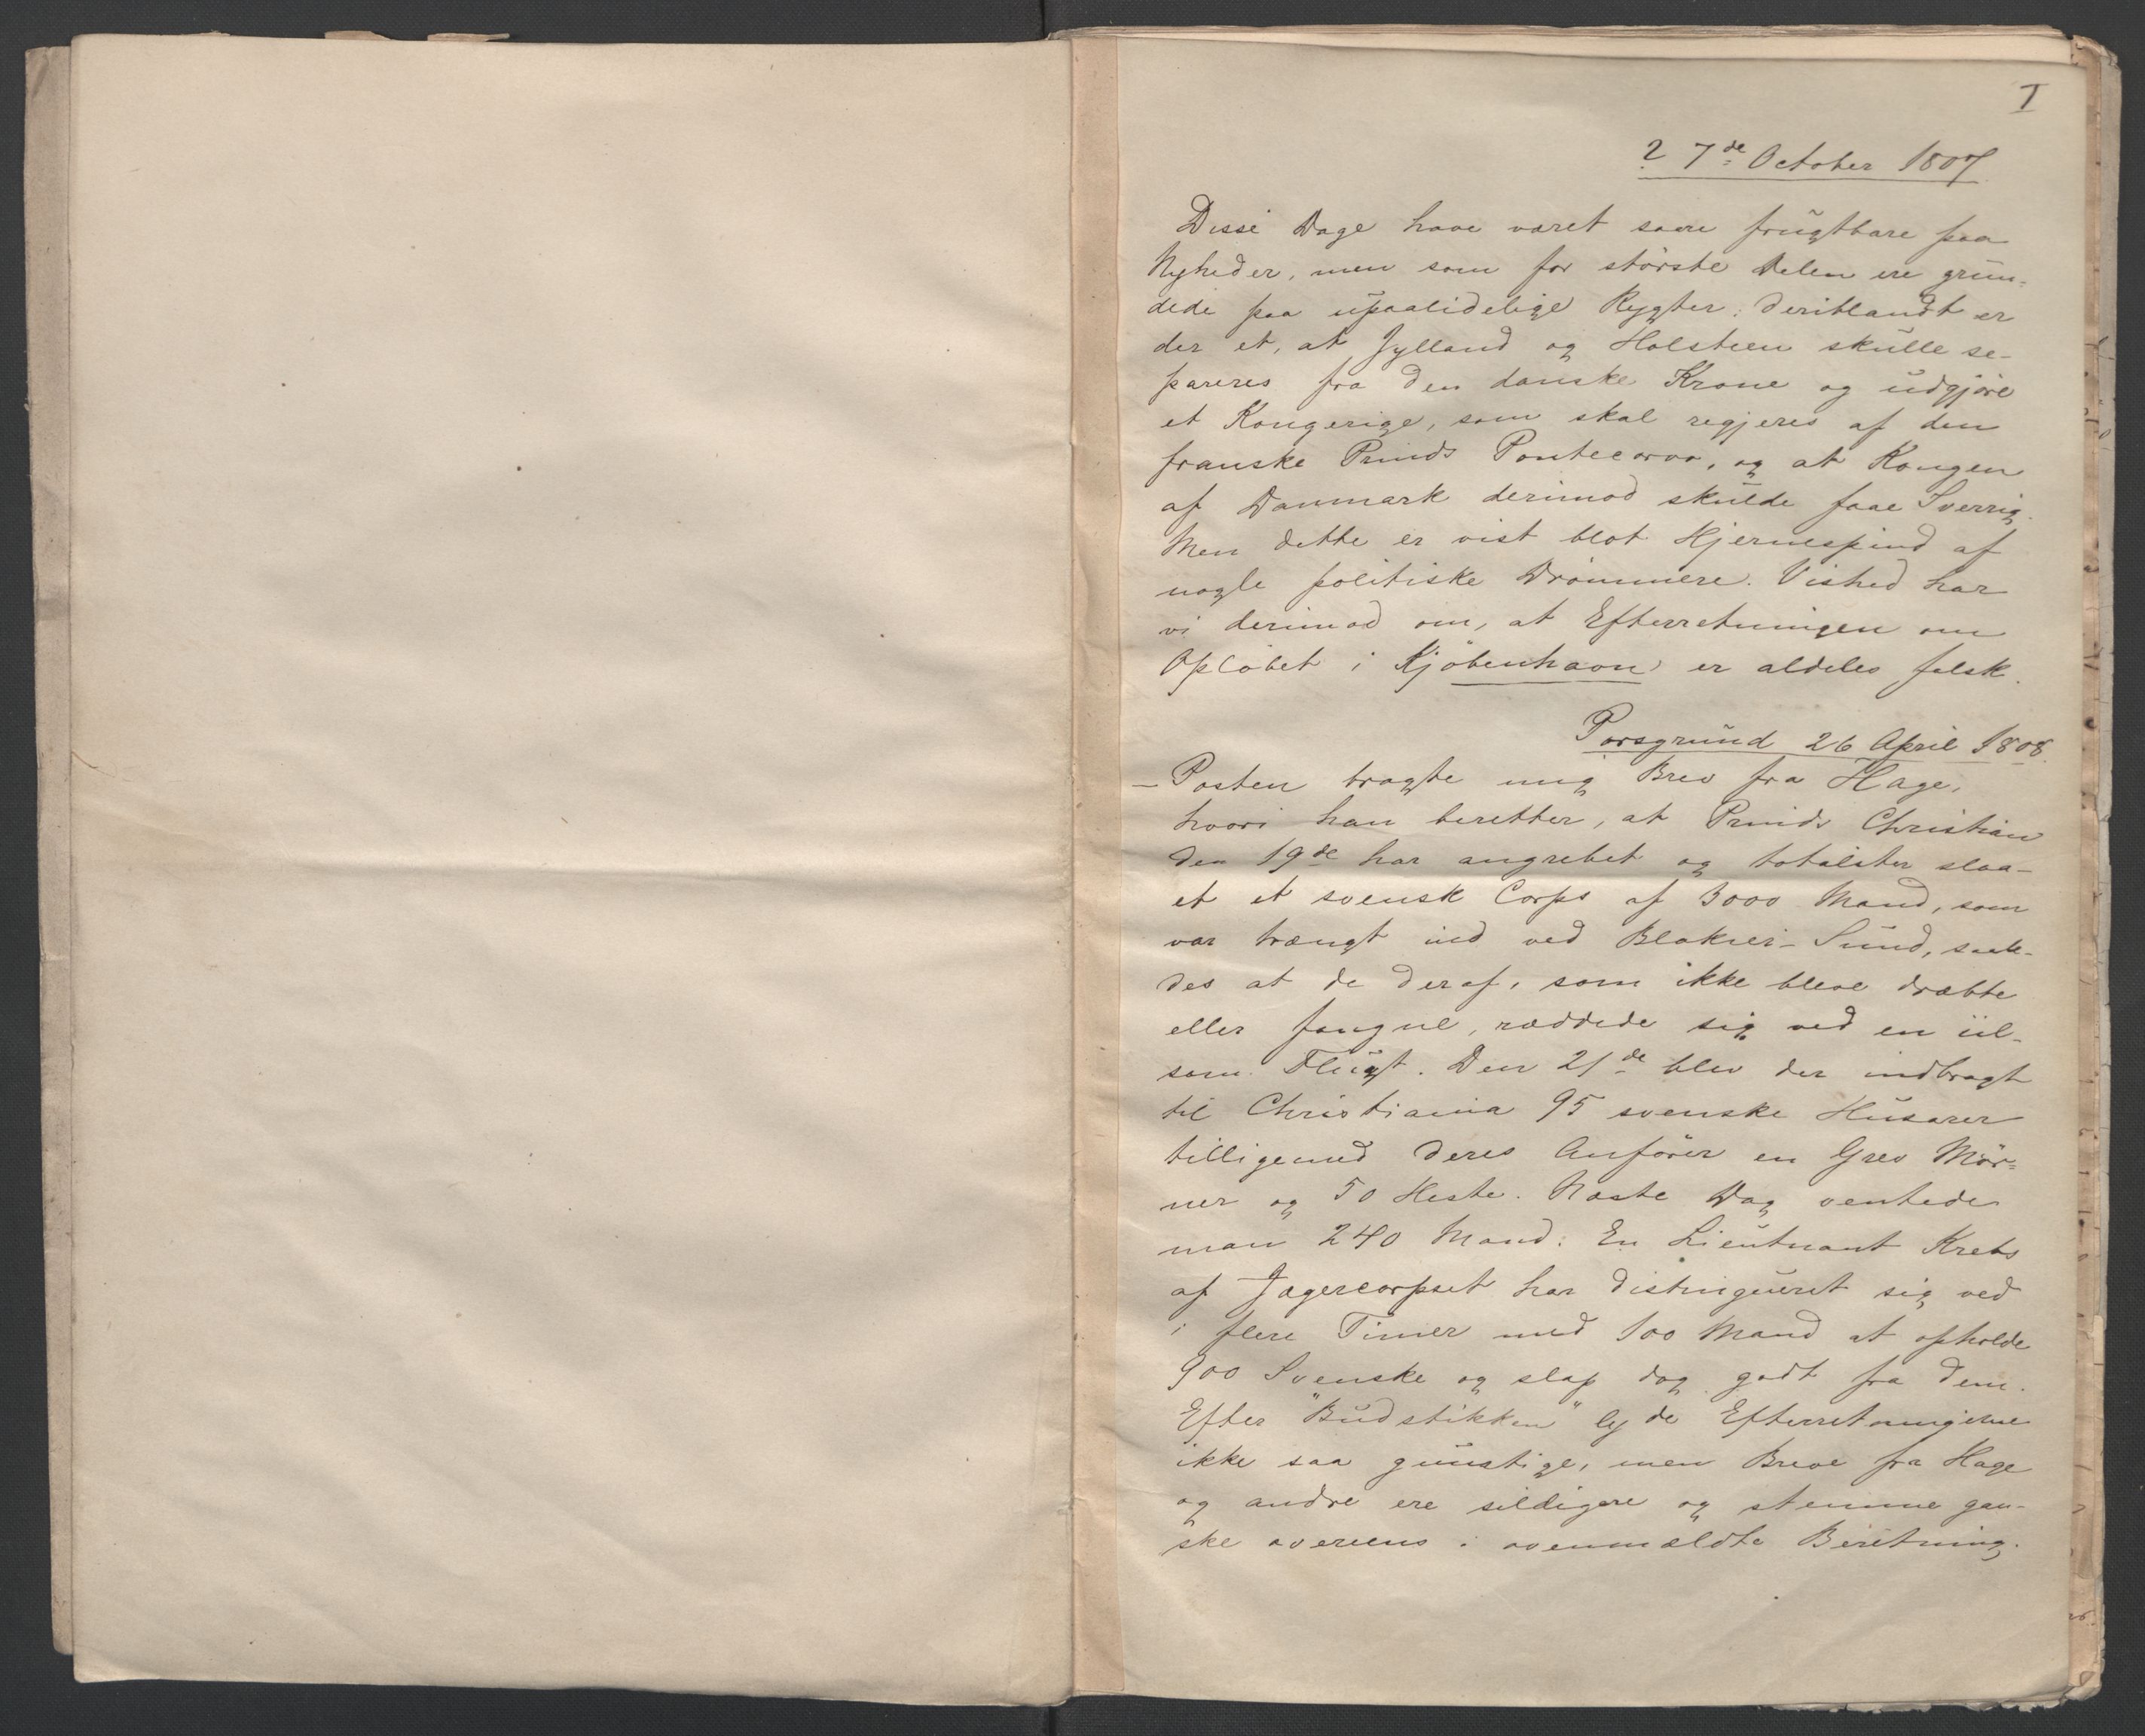 I
27de October 1807
Disse Dage have været saare frugtbare paa
Nyheder, men som for störste Delen ere grun-
dede paa upaalidelige Rygter; deriblandt er
der et, at Jylland og Holsteen skulle se-
pareres fra den danske Krone og udgjöre
et Kongerige, som skal regjeres af den
franske Prinds Pontecorvo, og at Kongen
af Danmark derimod skulde faae Sverrig.
Men dette er vist blot Hjernespind af
nogle politiske Drömmere. Vished har
vi derimod om, at Efterretningen om
Oplöbet i Kjöbenhavn er aldeles falsk.
Porsgrund 26 April 1808.
– Posten bragte mig Brev fra Hage,
hvori han beretter, at Prinds Christian
den 19de har angrebet og totaliter slaa-
et et svensk Corps af 3000 Mand, som
var trængt ind ved Blakier-Sund, saale-
des at de deraf, som ikke bleve dræbte
eller fangne, ræddede sig ved en iil-
som Flugt. Den 21de blev der indbragt
til Christiania 95 svenske Husarer
tilligemed deres Anförer en Grev Mör-
ner og 50 Heste. Næste Dag ventede
man 240 Mand: En Lieutnant Krebs
af Jægercorpset har distingueret sig ved
i flere Timer med 100 Mand at opholde
900 Svenske og slap dog godt fra dem.
Efter "Budstikken" lyde Efterretningerne
ikke saa gunstige, men Breve fra Hage
og andre ere sildigere og stemme gan-
ske overeens i ovenmældte Beretning.